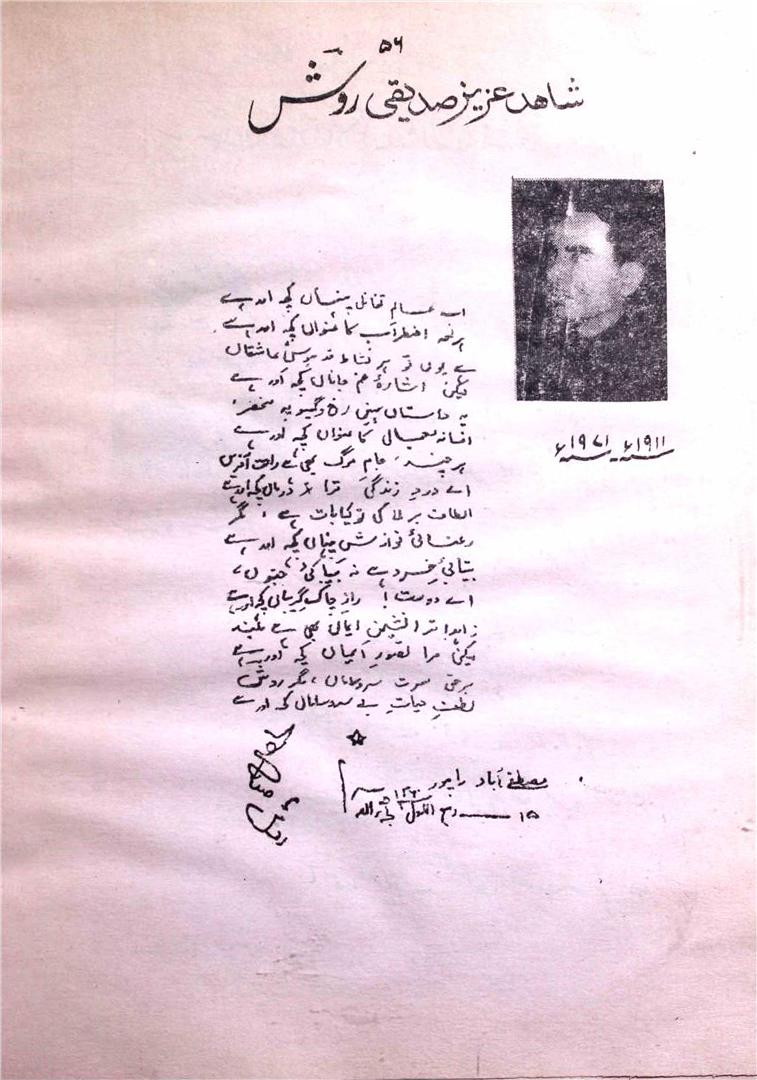 ۵۶
شاهد عزیز صدیقی روش
۱۹۱۱ء - ۱۹۷۱ء
اب عالم تغافل پنہاں کچھ اور ہے
ہر نغمہ اضطراب کا عنواں کچھ اور ہے
ہے یوں تو ہر نشاط قدم بوس عاشقاں
لیکن اشارۂ غم جاناں کچھ اور ہے
یہ داستاں نہیں رخ و گیسو پہ منحصر
افسانۂ جمال کا عنواں کچھ اور ہے
ہر چند جامِ مرگ بھی ہے راحت آفریں
اے دردِ زندگی ترا درماں کچھ اور ہے
الطاف برملا کی تو کیا بات ہے، مگر
رعنائیٔ نوازش پنہاں کچھ اور ہے
بیتابیٔ خرد ہے نہ بیباکیٔ جنوں،
اے دوست! رازِ چاک گریباں کچھ اور ہے
زاہد! ترا نشیمن ایماں بھی ہے بلند
لیکن مرا تصور ایماں کچھ اور ہے
برحق سروساماں، مگر روش
لطفِ حیاتِ بے سروساماں کچھ اور ہے
مصطفےٰ آباد رامپور
۱۵ ربیع الاول
روش صدیقی